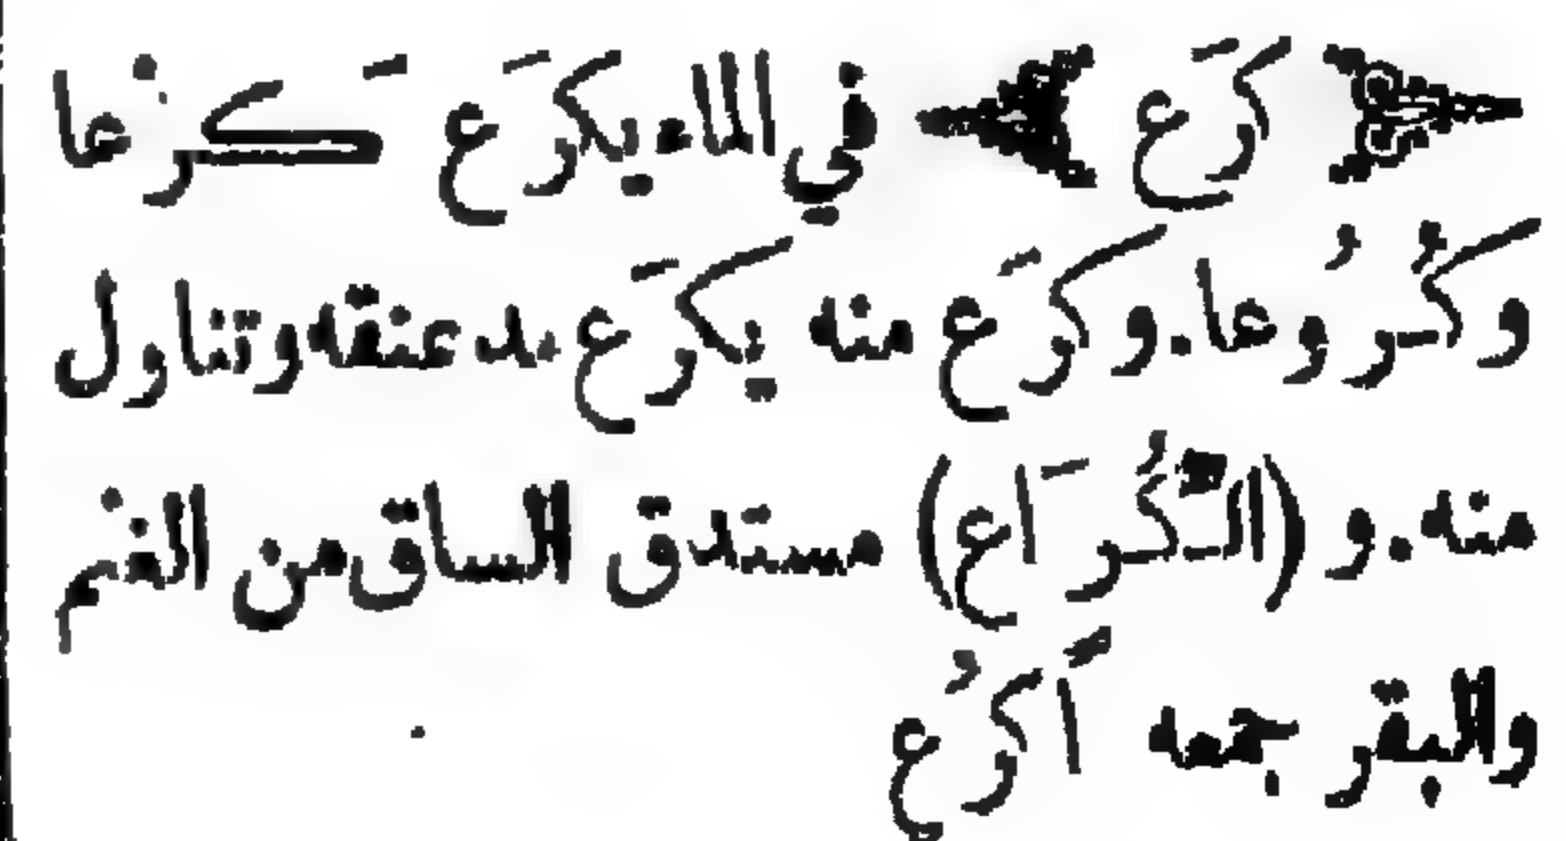 كرَع في الماء يكرَع كَرْعا
وكُرُوعا. وكرَع منه يكرَع مد عنقه وتناول
منه. و (الكُرَاع) مستدق الساق من الغنم
والبقر جمعه أَكرُع